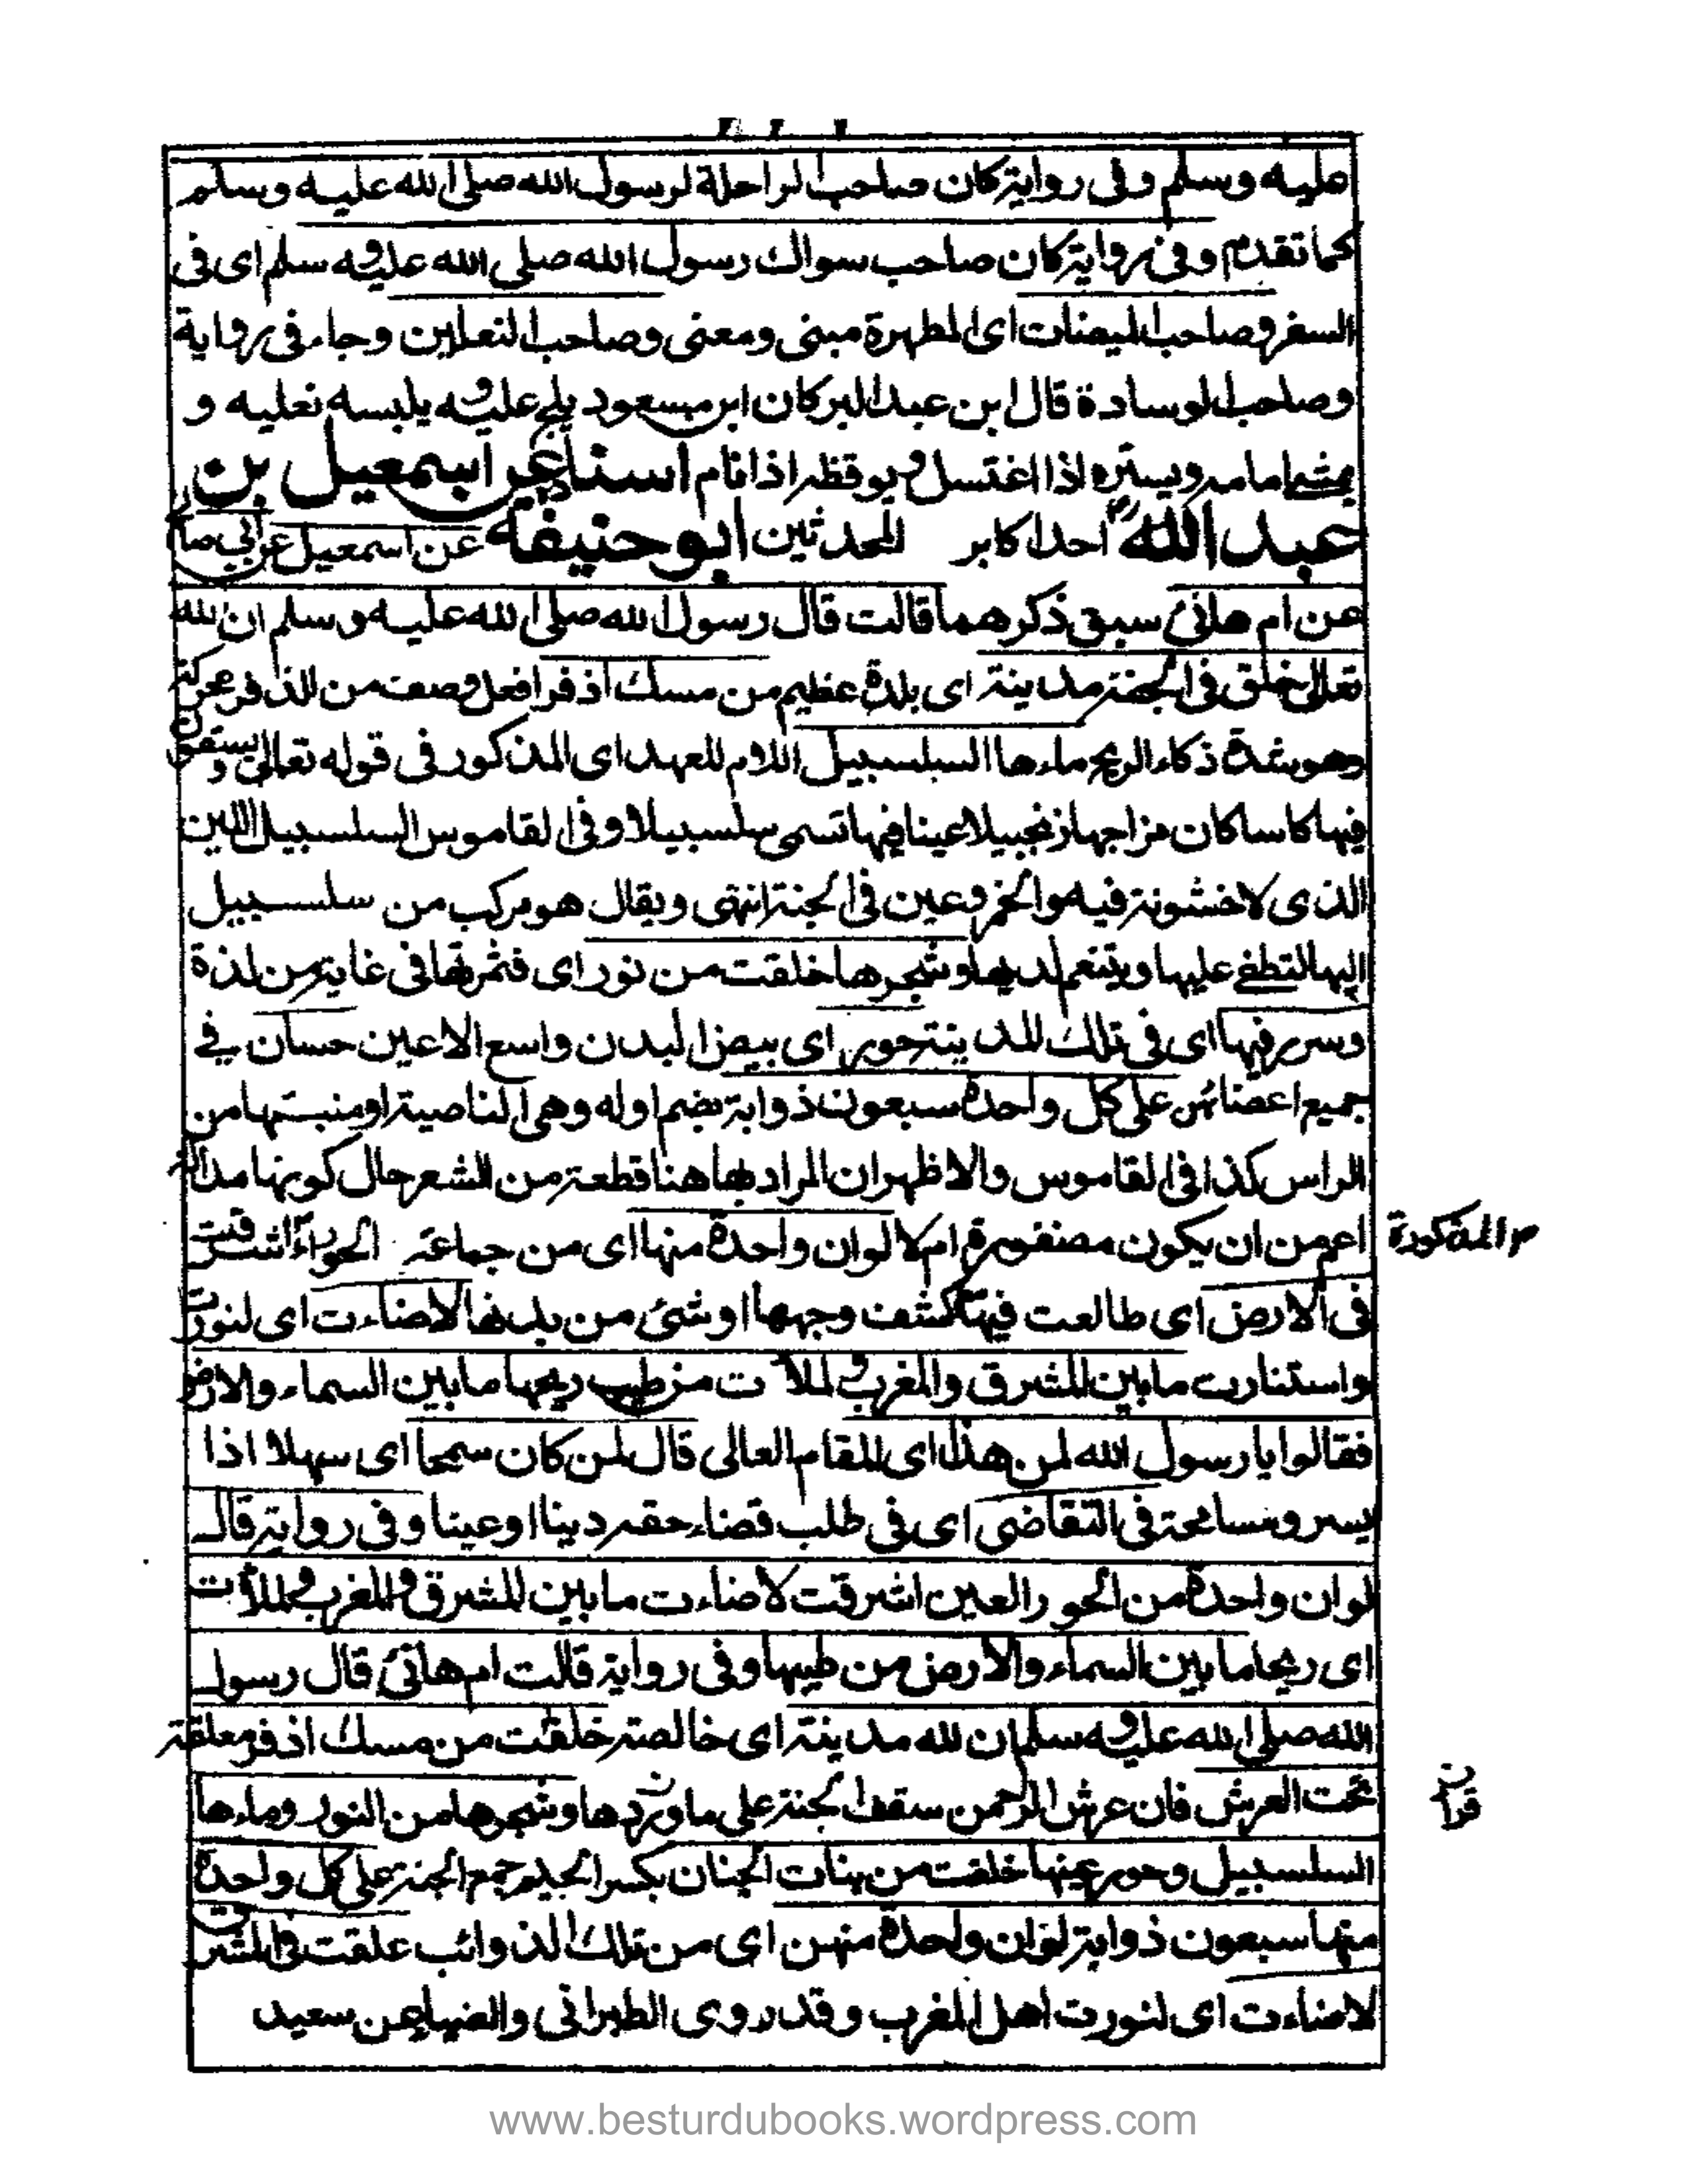 عليه وسلم وفى رواية كان صاحب الراحلة لرسول الله صلى الله عليه وسلم
كما تقدم وفى رواية كان صاحب سواك رسول الله صلى الله عليه وسلم اى فى
السفر وصاحب الميضات اى المطهرة مبنى ومعنى وصاحب النعلين وجاء فى رواية
وصاحب الوسادة قال ابن عبد البر كان ابن مسعود يلج عليه ويلبسه نعليه و
يمشى امامه ويستره اذا اغتسل ويوقظه اذا نام اسناده عن اسمعيل بن
عبد الله احد اكابر المحدثين ابو حنيفة عن اسمعيل عن ابي صالح
عن ام هانئ سبق ذكرهما قالت قال رسول الله صلى الله عليه وسلم ان لله
تعالى خلق فى الجنة مدينة اى بلدة عظيم من مسك اذفر افعل وصف من الذفر محركة
وهو شدة ذكاء الريح ماءها السلسبيل اللام للعهد اى المذكور فى قوله تعالى ويسقون
فيها كاسا كان مزاجها زنجبيلا عينا فيها تسمى سلسبيلا وفى القاموس السلسبيل اللين
الذى لا خشونة فيه والخمر وعين فى الجنة انتهى ويقال هو مركب من سلسبيل
اليها لتطفئ عليها ويتنعم لديها وشجرها خلقت من نور اى فثمرتها فى غاية من لذة
وسرر فيها اى فى تلك المدينة حور اى بيض البدن واسع الاعين حسان فے
جميع اعضائهن على كل واحدة سبعون ذوابة بضم اوله وهى الناصية او منبتها من
الراس كذا فى القاموس والاظهر ان المراد بها هنا قطعة من الشعر حال كونها
اعم من ان يكون مضفورة ام لا لو ان واحدة منها اى من جماعة الحوراء اشرقت
المذكورة
فى الارض اى طالعت فيها كشف وجهها او شئ من بدنها لاضاءت اى لنورت
واستنارت ما بين المشرق والمغرب ولملأت من طيب ريحها ما بين السماء والارض
فقالوا يا رسول الله لمن هذا اى المقام العالى قال لمن كان سمحا اى سهلا اذا
يسر ومسامحة فى التقاضى اى فى طلب قضاء حقه دينا او عينا وفى رواية قال
لو ان واحدة من الحور العين اشرقت لاضاءت ما بين المشرق والمغرب ولملأت
اى ريحا ما بين السماء والارض من طيبها وفى رواية قالت ام هانئ قال رسول
الله صلى الله عليه وسلم ان لله مدينة اى خالصة خلقت من مسك اذفر معلقة
تحت العرش فان عرش الرحمن سقف الجنة على ما ورد وشجرها من النور وماءها
السلسبيل وحور عينها خلقت من بنات الجنان بكسر الجيم جمع الجنة على كل واحدة
منها سبعون ذوابة لو ان واحدة منهن اى من تلك الذوائب علقت فى المشرق
لاضاءت اى لنورت اهل المغرب وقد روى الطبرانى والضياء عن سعيد
www.besturdubooks.wordpress.com